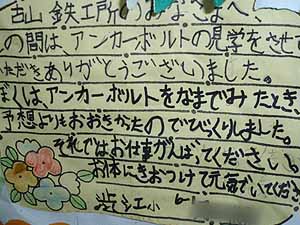 古山鉄工所のみなさまへ、
の間は、アンカーボルトの見学をさせて
いただきありがとうございました。
ぼくは、アンカーボルトをなまでみたとき、
予想よりもおおきかったのでびっくりしました。
それではお仕事がんばってください。
お体にきおつけて元気でいてくださ
小 6-1